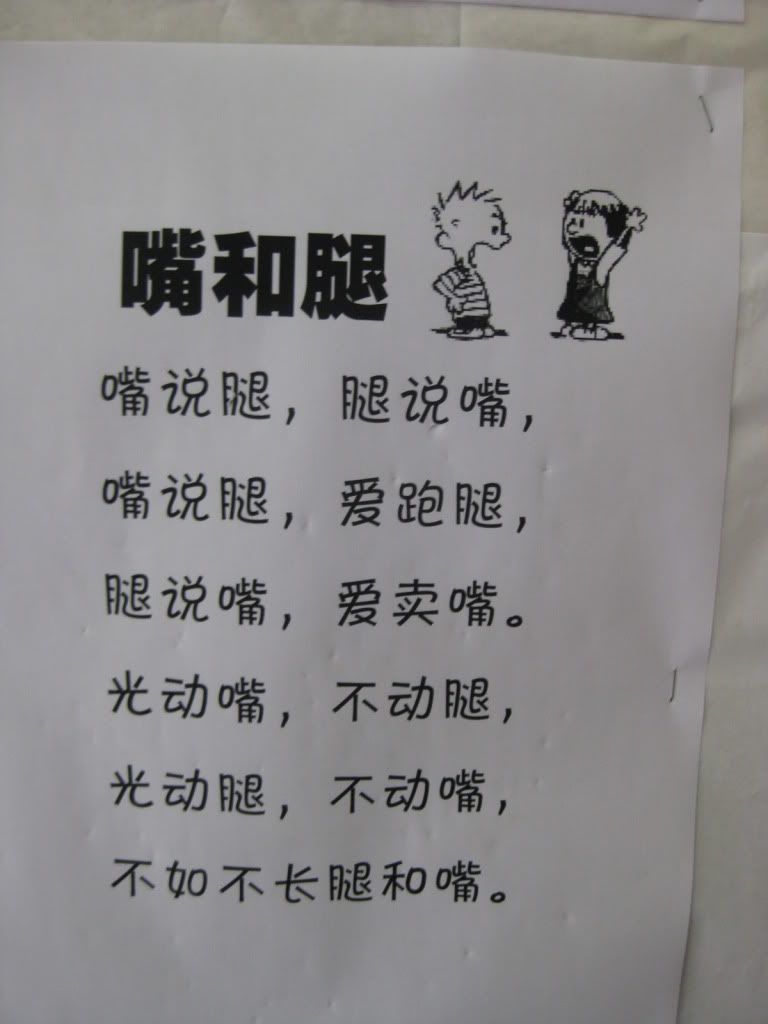 嘴和腿
嘴说腿，腿说嘴，
嘴说腿，爱跑腿，
腿说嘴，爱卖嘴。
光动嘴，不动腿，
光动腿，不动嘴，
不如不长腿和嘴。